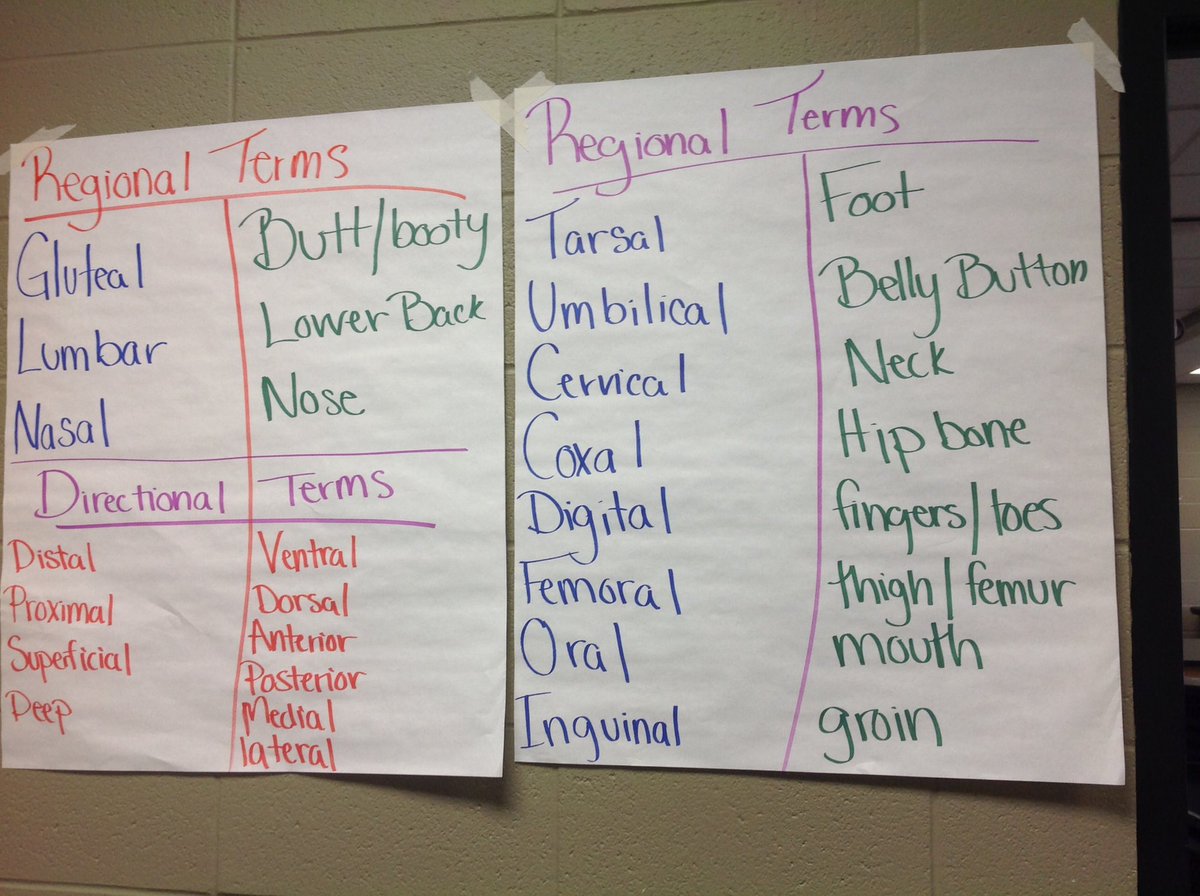 Regional Terms
Gluteal Butt/booty
Lumbar Lower Back
Nasal Nose
Directional Terms
Distal Ventral
Proximal Dorsal
Superficial Anterior
Deep Posterior
Medial
lateral
Regional Terms
Tarsal Foot
Umbilical Belly Button
Cervical Neck
Coxal Hip bone
Digital fingers/toes
Femoral thigh/femur
Oral mouth
Inguinal groin